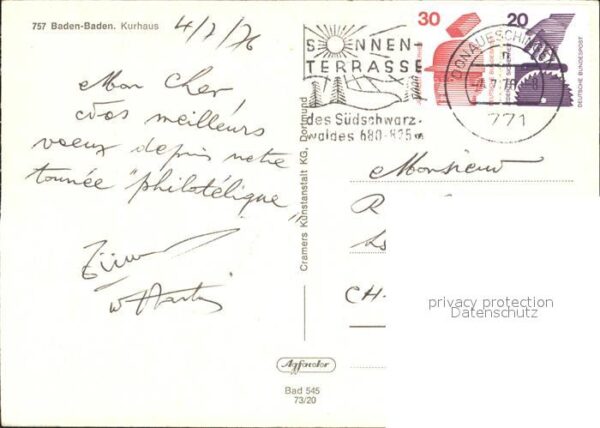 757 Baden-Baden. Kurhaus
4/7/76
Mon Cher
nos meilleurs
voeux depuis notre
tournée "philatélique"
SONNEN-
TERRASSE
des Südschwarz-
waldes 680-825m
30
20
DEUTSCHE BUNDESPOST
DONAUESCHINGEN
771
Cramers Kunstanstalt KG, Dortmund
Monsieur
R
CH-
privacy protection
Datenschutz
Agfacolor
Bad 545
73/20